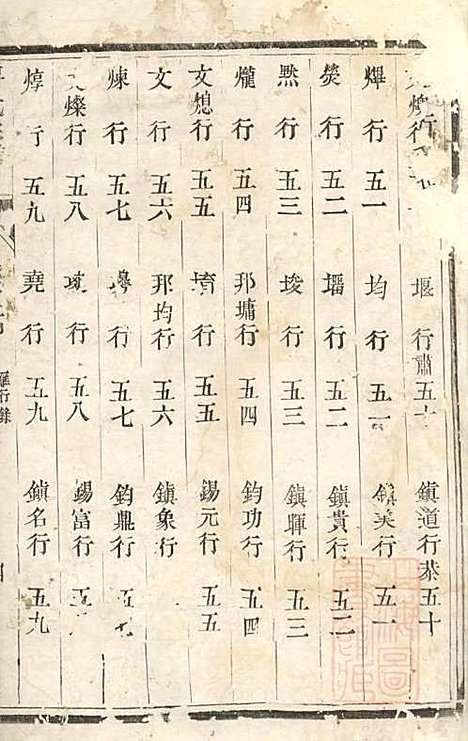 行 堰行肅五十 鎮道行恭五十
燡行五一 均行五一 鎮美行五一
熒行五二 堛行五二 鎮貴行五二
㸃行五三 埈行五三 鎮暉行五三
爖行五四 邦墉行五四 鈞功行五四
文熄行五五 堉行五五 錫元行五五
文行五六 邦均行五六 鎮象行五六
煉行五七 行五七 鈞鼎行五七
燦行五八 行五八 錫富行五八
焞行五九 堯行五九 鎮名行五九
雁行錄
四